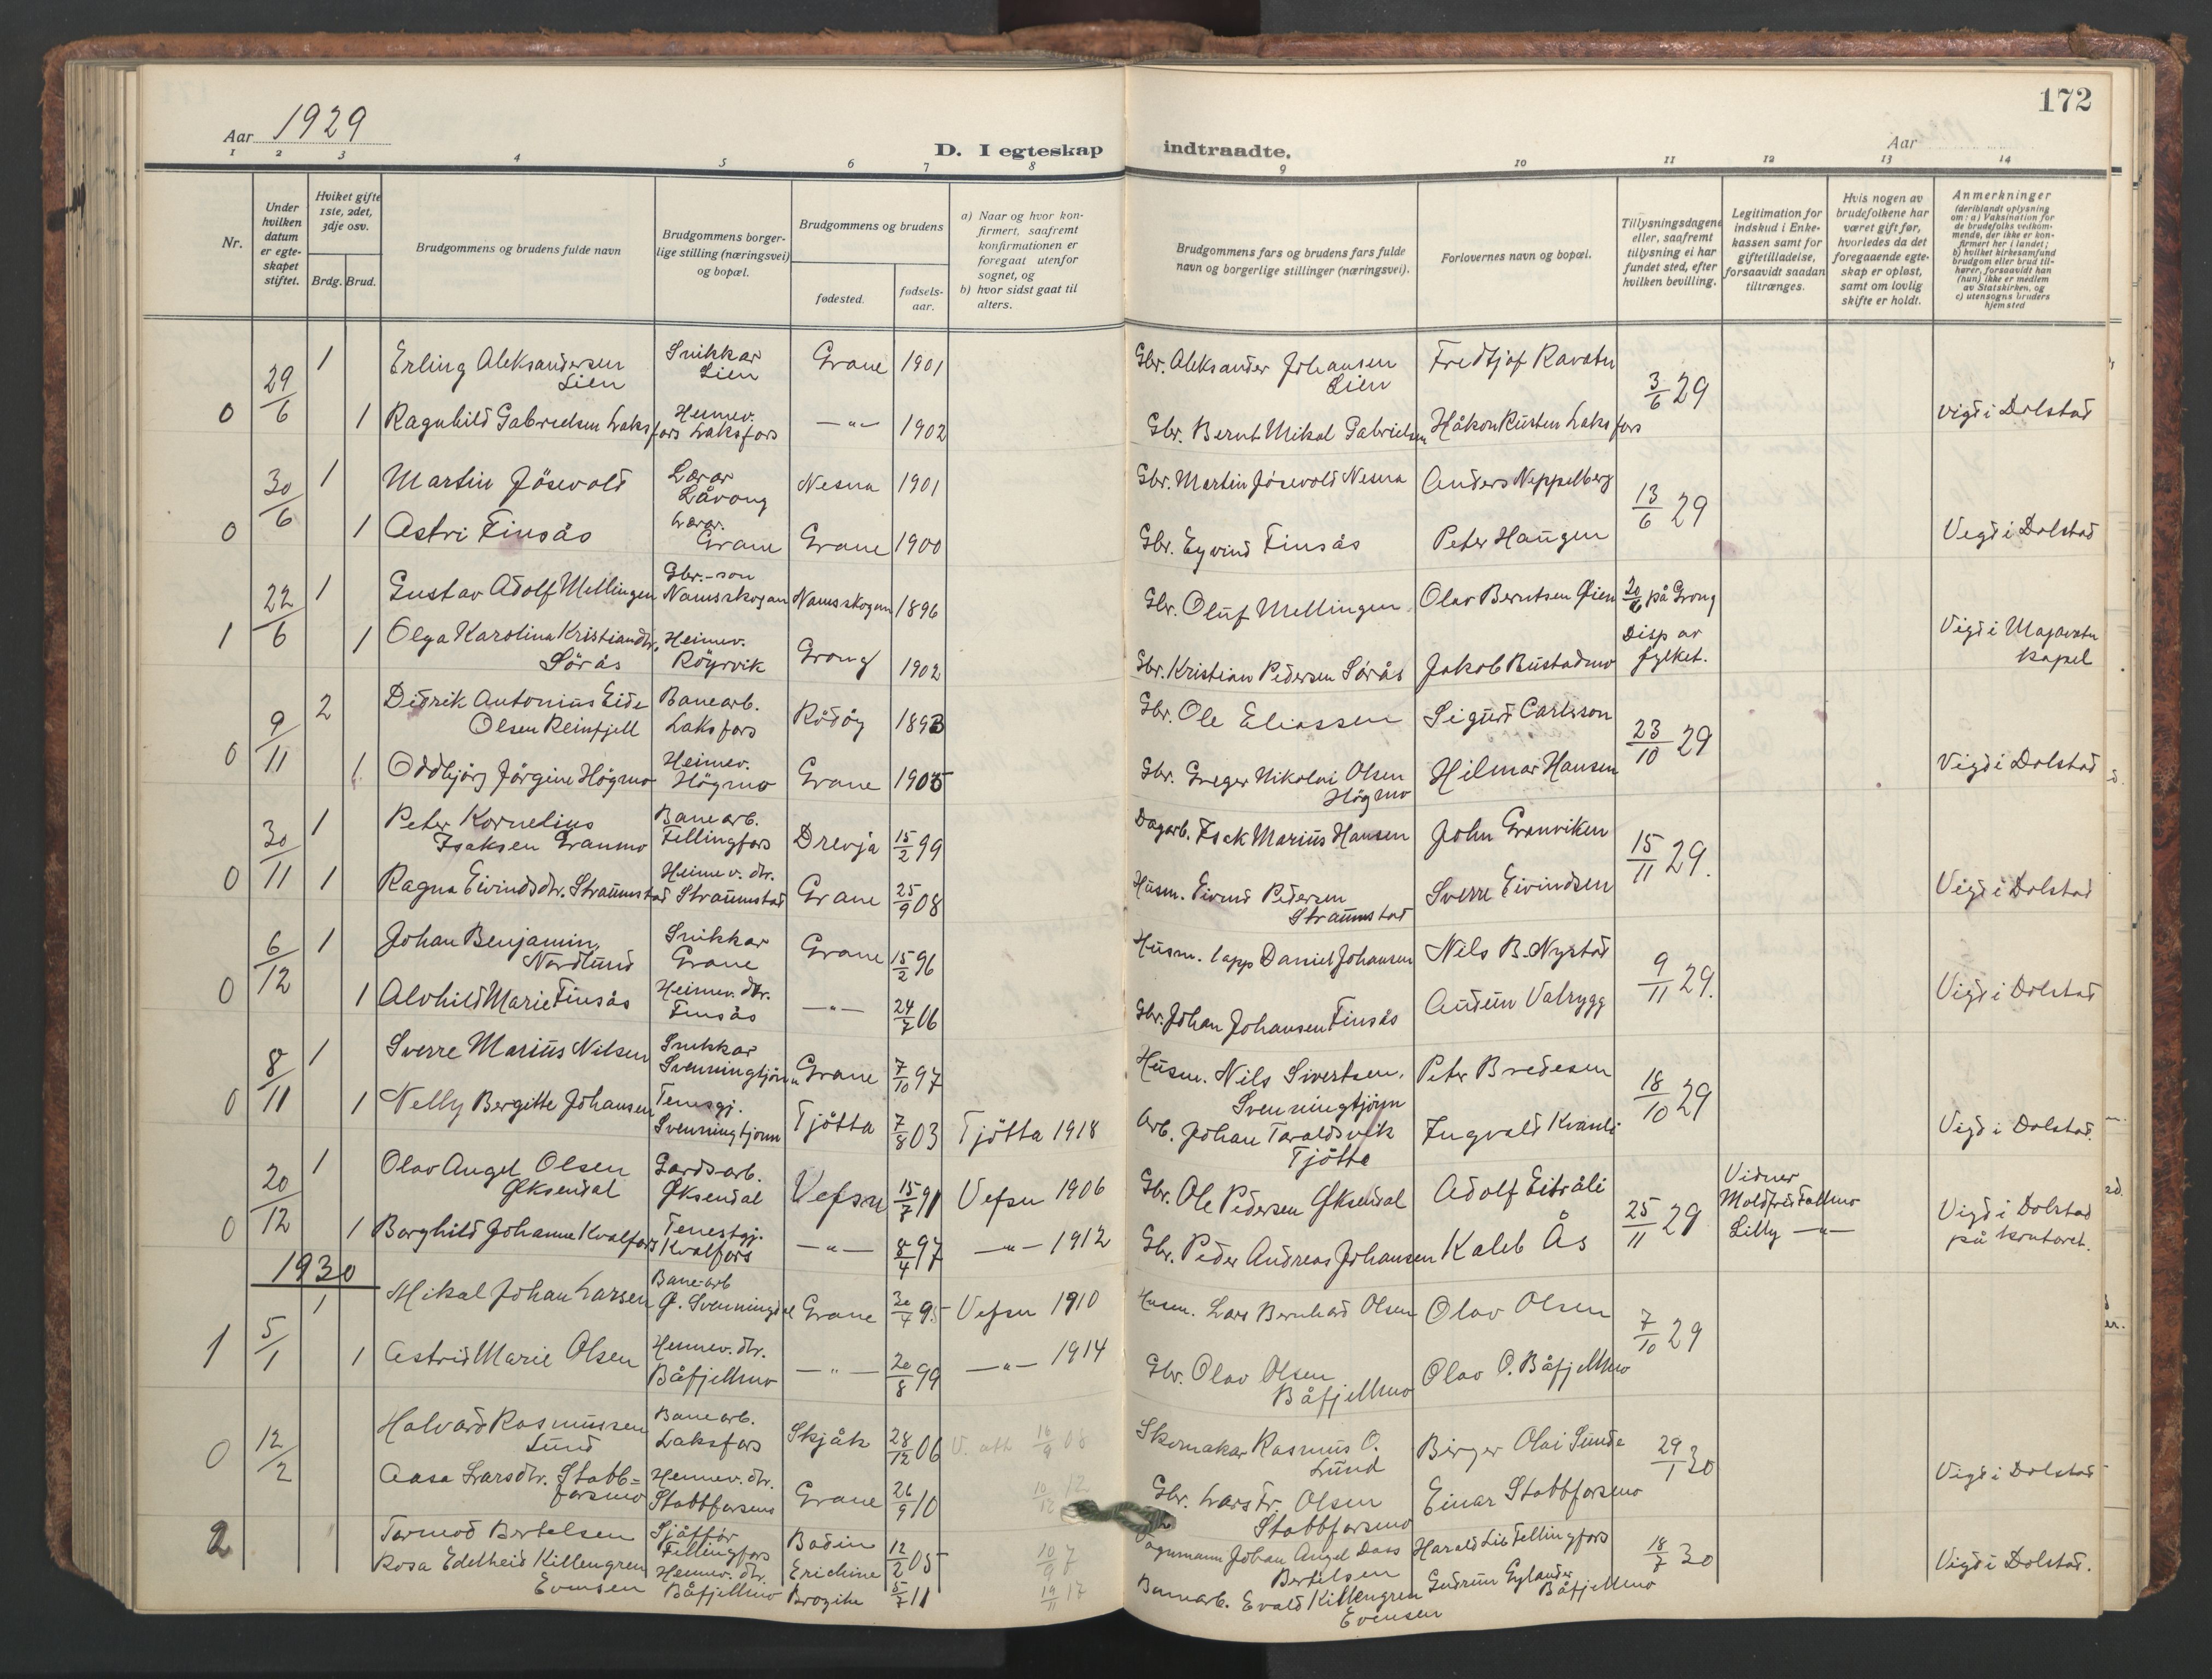 172
Aar 1929
D. I egteskap indtraadte.
Aar
1 2 3 4 5 6 7 8 9 10 11 12 13 14
Nr.
Under hvilken datum er egte-skapet stiftet.
Hviket gifte 1ste, 2det, 3dje osv.
Brdg. Brud.
Brudgommens og brudens fulde navn
Brudgommens borger-lige stilling (næringsvei) og bopæl.
Brudgommens og brudens
fødested.
fødsels-aar.
a) Naar og hvor kon-firmert, saafremt konfirmationen er foregaat utenfor sognet, og
b) hvor sidst gaat til alters.
Brudgommens fars og brudens fars fulde navn og borgerlige stillinger (næringsvei).
Forlovernes navn og bopæl.
Tillysningsdagene eller, saafremt tillysning ei har fundet sted, efter hvilken bevilling.
Legitimation for indskud i Enke-kassen samt for giftetilladelse, forsaavidt saadan tiltrænges.
Hvis nogen av brudefolkene har været gift før, hvorledes da det foregaaende egte-skap er opløst, samt om lovlig skifte er holdt.
Anmerkninger
(deriblandt oplysning om: a) Vaksination for de brudefolks vedkom-mende, der ikke er kon-firmert her i landet; b) hvilket kirkesamfund brudgom eller brud til-hører, forsaavidt han (hun) ikke er medlem av Statskirken, og c) utensogns bruders hjemsted
29/6 1 Erling Aleksandersen Lien Snikkar Lien Grane 1901 Gbr. Aleksander Johansen Lien Fredtjof Ravatn 3/6 29
0 1 Ragnhild Gabrielsen Laksfors Heimev. Laksfors -"- 1902 Gbr. Bernt Mikal Gabrielsen Håkon Rusten Laksfors vigd i Dolstad
30/6 1 Martin Jösevold Lærar Låvong Nesna 1901 Gbr. Martin Jösevold Nesna Anders Neppelberg 13/6 29
0 1 Astri Finsås Lærar. Grane Grane 1900 Gbr. Eyvind Finsås Peter Haugen Vigd i Dolstad
22/6 1 Gustav Adolf Mellingen Gbr.-son Namsskogan Namsskogan 1896 Gbr. Oluf Mellingen Olav Berntsen Öien 20/6 på Grong
1 1 Olga Karolina Kristiandtr. Sörås Heimev. Röyrvik Grong 1902 Gbr. Kristian Pedersen Sörås Jakob Bustadmo Disp av fylket. Vigd i Majavatn kapel
9/11 2 Didrik Antonius Eide Olsen Reinfjell Banearb. Laksfors Rödöy 1893 Gbr. Ole Eliassen Sigurd Carlsson 23/10 29
0 1 Oddbjörg Jörgine Högmo Heimev. Högmo Grane 1905 Gbr. Greger Nikolai Olsen Högmo Hilmar Hansen Vigd i Dolstad
30/11 1 Peter Kornelius Isaksen Granmo Banearb. Fellingfors Drevja 15/2 99 Dagarb. Isak Marius Hansen John Granviken 15/11 29.
0 1 Ragna Eivindsdtr. Straumstad Heimev. dtr. Straumstad Grane 25/9 08 Husm. Eivind Pedersen Straumstad Sverre Eivindsen Vigd i Dolstad
6/12 1 Johan Benjamin Nordlund Snikkar Grane Grane 15/2 96 Husm. lapp Daniel Johansen Nils B. Nystad 9/11 29.
0 1 Alvhild Marie Finsås Heimev. dtr. Finsås -"- 24/7 06 Gbr. Johan Johansen Finsås Audun Valrygg Vigd i Dolstad
8/11 1 Sverre Marius Nilsen Snikkar Svenningtjönn Grane 7/10 97 Husm. Nils Sivertsen, Svenningtjönn Peter Bredesen 18/10 29
0 1 Nelly Bergitte Johansen Tenesgj. Svenningtjönn Tjötta 7/8 03 Tjötta 1918 Arb. Johan Taraldsvik Tjötta Ingvald Kvanli Vigd i Dolstad.
20/12 1 Olav Angel Olsen Öksendal Gardsarb. Öksendal Vefsn 15/7 91 Vefsn 1906 Gbr. Ole Pedersen Öksendal Adolf Eiteråli 25/11 29 Vidner Moldfrid Fallmo
0 1 Borghild Johanne Kvalfors Tenestgj. Kvalfors -"- 8/4 97 -"- 1912 Gbr. Peder Andreas Johansen Kaleb Ås Lilly -"- Vigd i Dolstad på kontoret.
1930
5/1 1 Mikal Johan Larsen Banearb Ö. Svenningdal Grane 30/4 95 Vefsn 1910 Husm. Lars Bernhard Olsen Olav Olsen 7/10 29
1 1 Astrid Marie Olsen Heimev. dtr. Båfjellmo -"- 20/8 99 -"- 1914 Gbr. Olav Olsen Båfjellmo Olav O. Båfjellmo
12/2 Halvard Rasmussen Lund Banearb. Laksfors Skjåk 28/12 06 16/9 08 Skomakar Rasmus O. Lund Birger Olai Sunde 29/1 30
0 Aasa Larsdtr. Stabb-forsmo Heimev. dtr. Stabbforsmo Grane 26/9 10 10/12 12 Gbr. Lars Fr. Olsen Stabbforsmo Einar Stabbforsmo Vigd i Dolstad
2 Tormod Bertelsen Sjåffør Fellingfors Bodin 12/2 05 10/9 7 Johan Angel Dass Bertelsen Harald Lie Fellingfors 18/7 30 Vigd i Dolstad.
Rosa Edelheid Killengren Evensen Heimev. dtr. Båfjellmo 5/7 11 19/11 17 Banearb. Evald Killengren Evensen Gudrun Gylander Båfjellmo